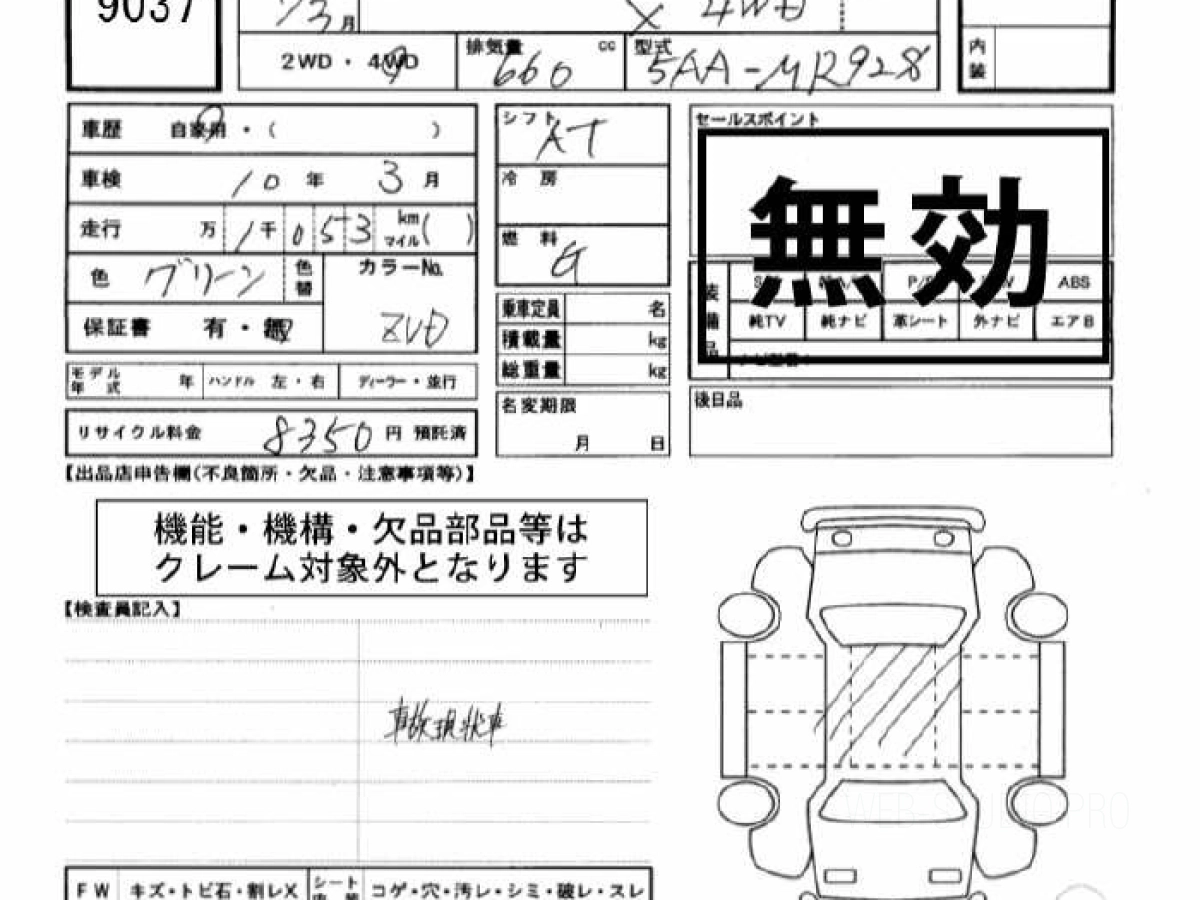 9037
/3月
X 4WD
2WD・4WD
排気量 660 cc
型式 5AA-MR92S
内装
車歴 自家用・( )
車検 10年 3月
走行 万 1千 0 5 3 km マイル( )
色 グリーン 色替
カラーNo. ZVD
保証書 有・無
モデル年式 年 ハンドル 左・右 ディーラー・並行
リサイクル料金 8350円 預託済
シフト AT
冷房
燃料 G
乗車定員 名
積載量 kg
総重量 kg
名変期限 月 日
セールスポイント
無効
装備品
ABS
純TV 純ナビ 革シート 外ナビ エアB
後日品
【出品店申告欄(不良箇所・欠品・注意事項等)】
機能・機構・欠品部品等は
クレーム対象外となります
【検査員記入】
事故現状車
FW キズ・トビ石・割レX シート コゲ・穴・汚レ・シミ・破レ・スレ